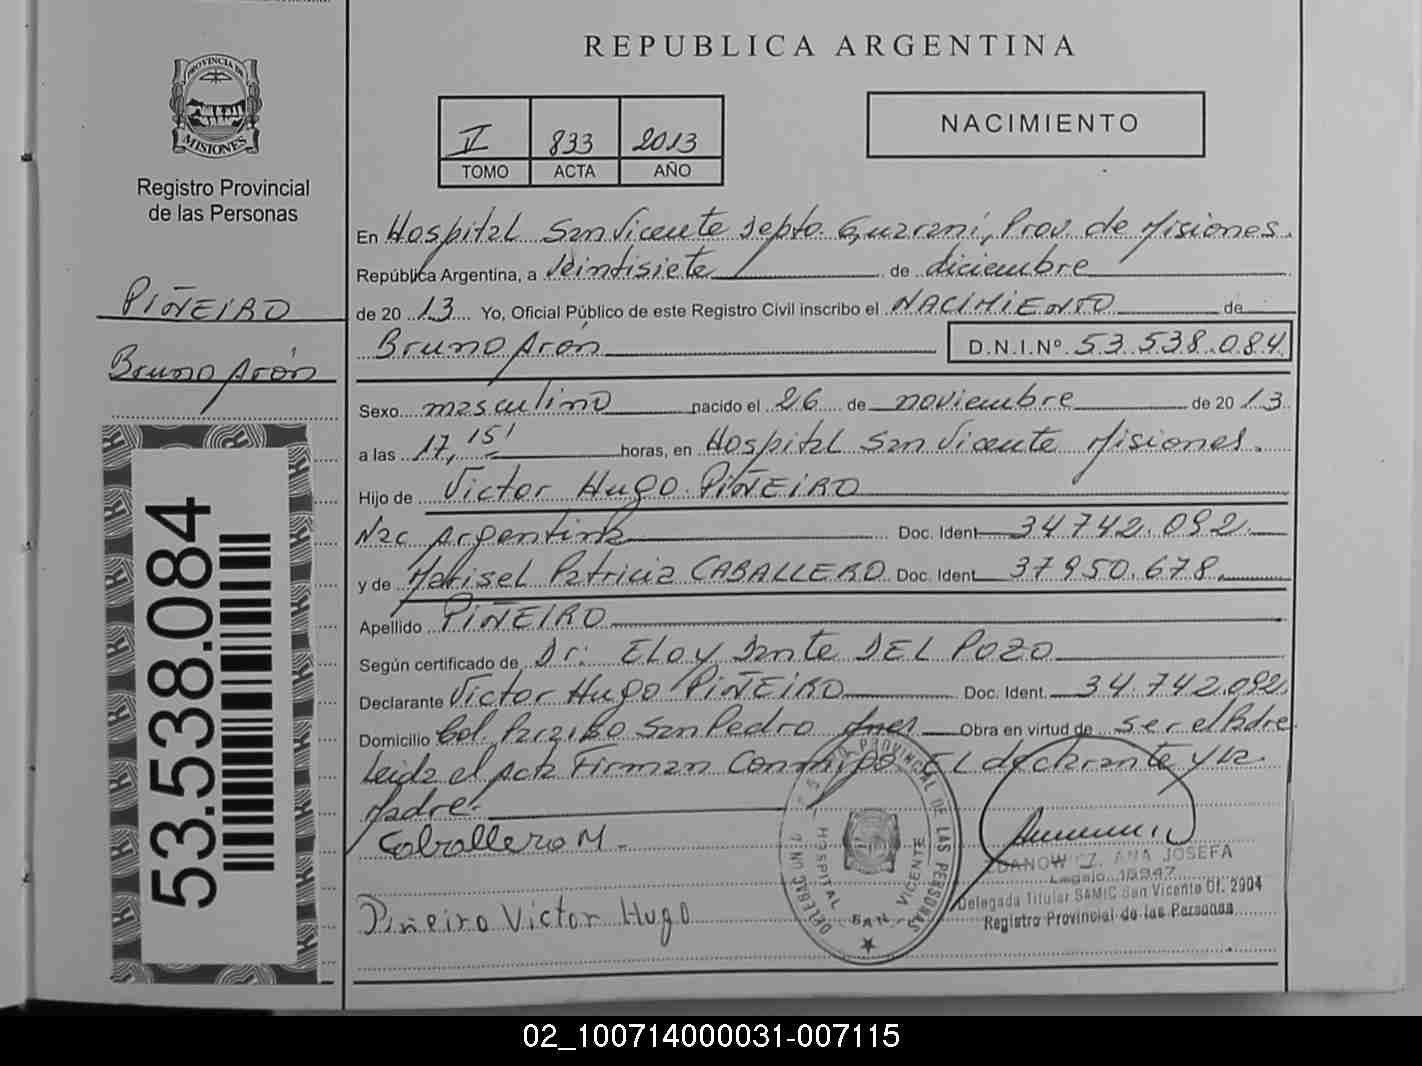 REPUBLICA ARGENTINA
PROVINCIA DE
MISIONES
Registro Provincial
de las Personas
PIÑEIRO
Bruno Arón
53.538.084
II 833 2013
TOMO ACTA AÑO
NACIMIENTO
En Hospital San Vicente Depto. Guaraní, Prov. de Misiones.
República Argentina, a Veintisiete de diciembre
de 20 13 Yo, Oficial Público de este Registro Civil inscribo el NACIMIENTO de
Bruno Arón D.N.I.Nº 53.538.084
Sexo masculino nacido el 26 de noviembre de 20 13
a las 17,15' horas, en Hospital San Vicente Misiones.
Hijo de Victor Hugo PIÑEIRO
Nac Argentina Doc. Ident 34.742.092
y de Marisel Patricia CABALLERO Doc. Ident 37950.678
Apellido PIÑEIRO
Según certificado de Dr: ELOY Dante DEL POZO
Declarante Victor Hugo PIÑEIRO Doc. Ident. 34.742.092
Domicilio Col. Paraiso San Pedro Obra en virtud de ser el Padre
Leida el Acta Firman Conmigo EL declarante y la
Madre.
Caballero M.
Piñeiro Victor Hugo
REGISTRO PROVINCIAL DE LAS PERSONAS
HOSPITAL SAN VICENTE
ANA JOSEFA
Legajo 15947
Delegada Titular SAMIC San Vicente Of. 2904
Registro Provincial de las Personas
02_100714000031-007115